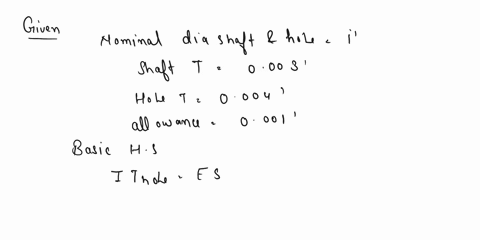 Given
Nominal dia shaft & hole = 1'
Shaft T = 0.003'
Hole T = 0.004'
allowance = 0.001'
Basic H.S
IT hole = ES